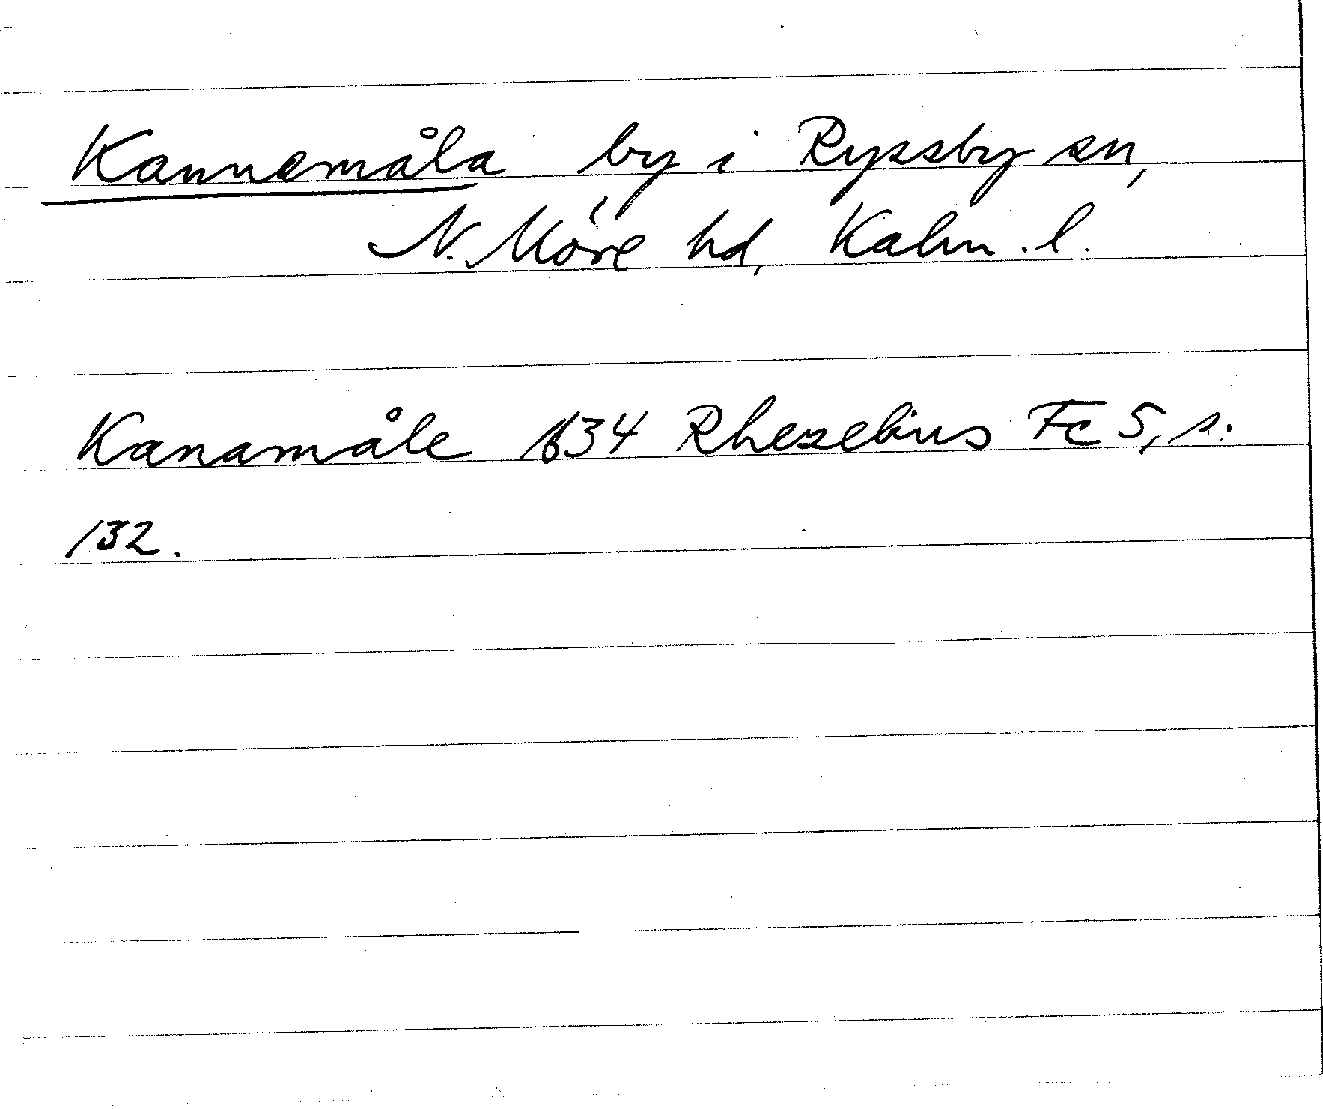 Kannemåla by i Ryssby sn,
N. Möre hd, Kalm. l.
Kanamåle 1634 Rhezelius Fc 5, s.
132.